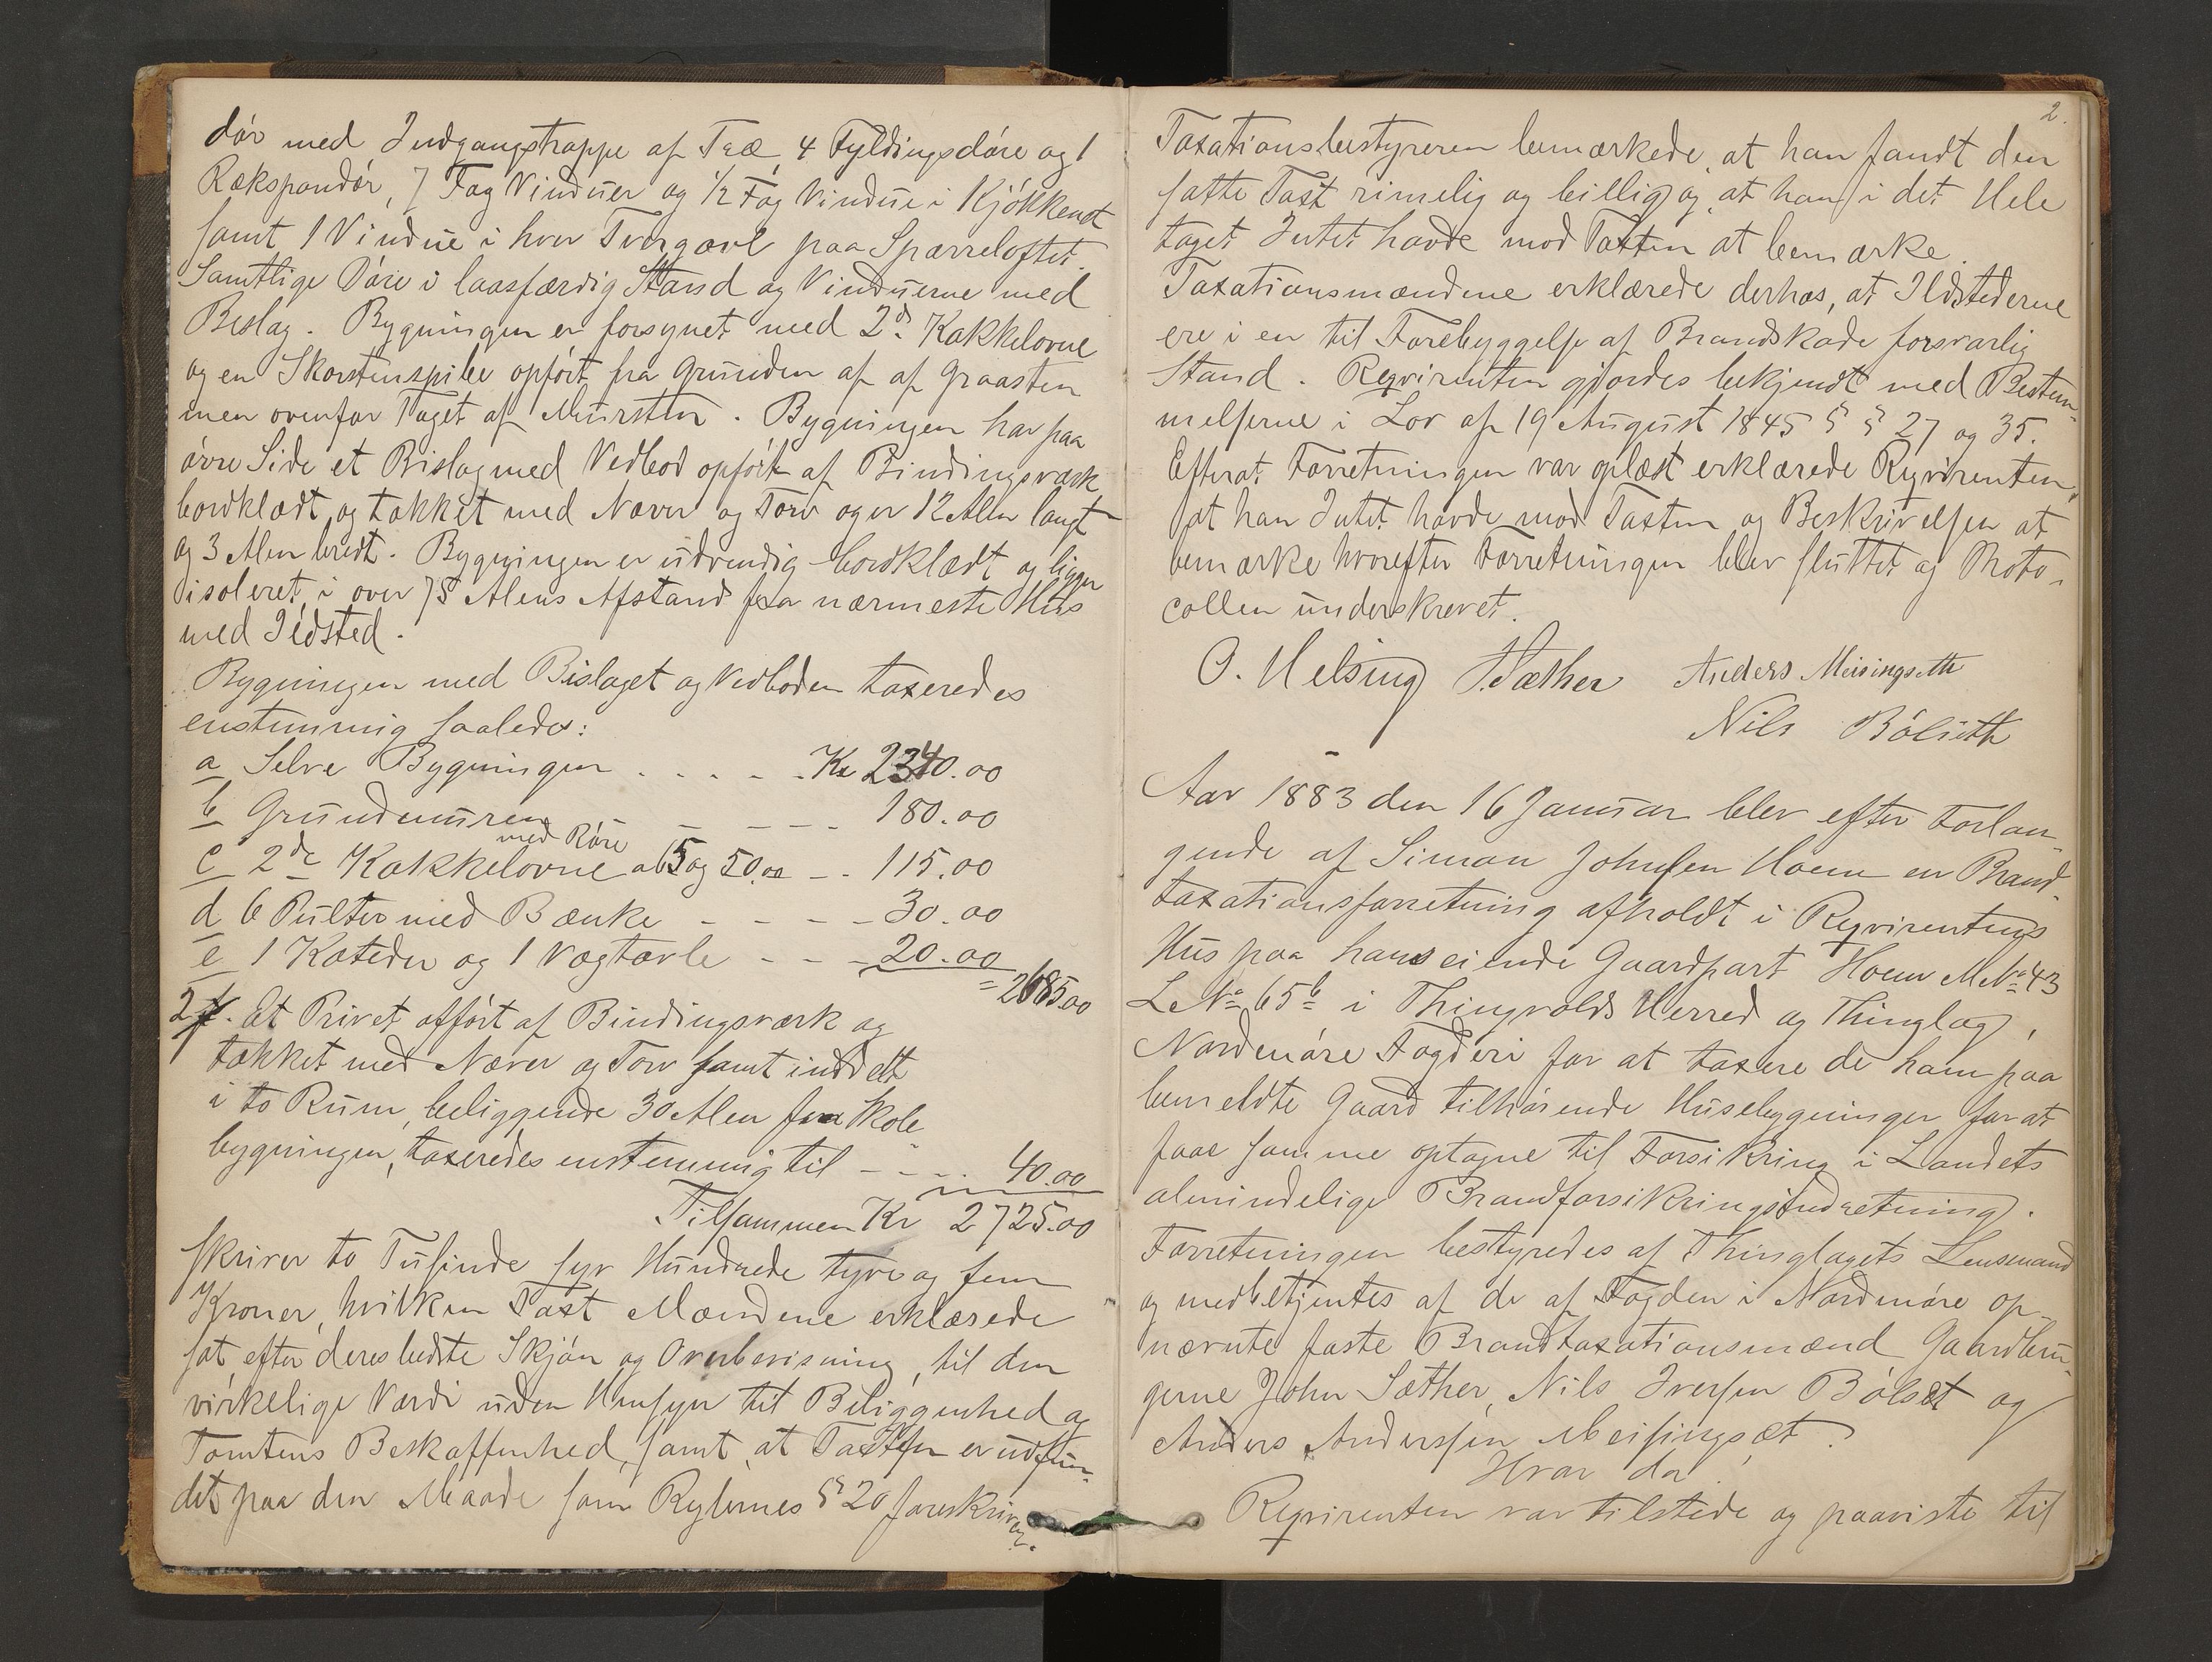 dør med Indgangstrappe af Træ, 4 Fyldingsdøre og 1
Rækspondør, 7 Fag Vinduer og 1/2 Fag Vindue i Kjøkkenet
samt 1 Vindue i hver Tvergavl paa Sparreloftet.
Samtlige Døre i laasfærdig Stand og Vinduerne med
Beslag. Bygningen er forsynet med 2de Kakkelovne
og en Skorstenspibe opført fra Grunden af af Graasten
men ovenfor Taget af Mursten. Bygningen har paa
øvre Side et Bislag med Vedbod opført af Bindingsværk
bordklædt og tækket med Næver og Torv og er 12 Alen langt
og 3 Alen bredt. Bygningen er udvendig bordklædt og ligger
isoleret i over 75 Alens Afstand fra nærmeste Hus
med Ildsted.
Bygningen med Bislaget og Vedboden taxeredes
enstemmig saaledes:
a Selve Bygningen . . . . . Kr 2340.00
b Grundmuren - - - - 180.00
med Røre
c 2de Kakkelovne a 65 og 50.00 - . 115.00
d 6 Pulter med Bænke - - - - 30.00
e 1 Kateder og 1 Vægtavle - - - 20.00
= 2685.00
2 f. Et Privet opført af Bindingsværk og
tækket med Næver og Torv samt inddelt
i to Rum, beliggende 30 Alen fra Skole
bygningen, taxeredes enstemmig til - - . . 40.00
Tilsammen Kr 2725.00
skriver to Tusinde syv Hundrede tyve og fem
Kroner, hvilken Taxt Mændene erklærede
sat, efter deres bedste Skjøn og Overbevisning, til den
virkelige Værdi uden Hensyn til Beliggenhed og
Tomtens Beskaffenhed, samt at Taxten er udfun-
det paa den Maade som Reglernes § 20 foreskriver.
2.
Taxationsbestyreren bemærkede, at han fandt den
satte Taxt rimelig og billig og at han i det Hele
taget Intet havde mod Taxten at bemærke.
Taxationsmændene erklærede derhos, at Ildstederne
ere i en til Forebyggelse af Brandskade forsvarlig
Stand. Reqvirenten gjordes bekjendt med Bestem-
melserne i Lov af 19 August 1845 § § 27 og 35.
Efterat Forretningen var oplæst erklærede Reqvirenten,
at han Intet havde mod Taxten og Beskrivelsen at
bemærke hvorefter Forretningen blev sluttet og Proto-
collen underskrevet.
O. Helsing J. Sæther Anders Meisingseth
Nils Bølseth
Aar 1883 den 16 Januar blev efter Forlan-
gende af Simon Johnsen Hoem en Brand-
taxationsforretning afholdt i Reqvirentens
Hus paa hans eiende Gaardpart Hoem M.No 43
L.No 65b i Thingvolds Herred og Thinglag,
Nordmøre Fogderi for at taxere de ham paa
bemeldte Gaard tilhørende Husebygninger for at
faae samme optagne til Forsikring i Landets
almindelige Brandforsikringsindretning.
Forretningen bestyredes af Thinglagets Lensmand
og medbetjentes af de af Fogden i Nordmøre op-
nævnte faste Brandtaxationsmænd Gaardbru-
gerne John Sæther, Nils Iversen Bølset og
Anders Anderssen Meisingsæt.
Hvor da
Reqvirenten var tilstede og paaviste til